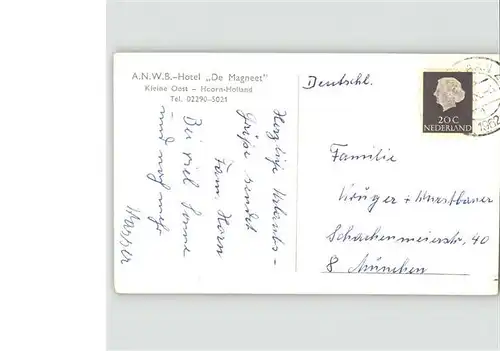 A.N.W.B.-Hotel „De Magneet"
Kleine Oost - Hoorn-Holland
Tel. 02290-5021
Herzliche Urlaubs-
grüße sendet
Fam. Horn
Bei viel Sonne
und noch mehr
Wasser
Deutschl.
20 C
NEDERLAND
Familie
Krüger +
Schachenmeierstr. 40
8 München